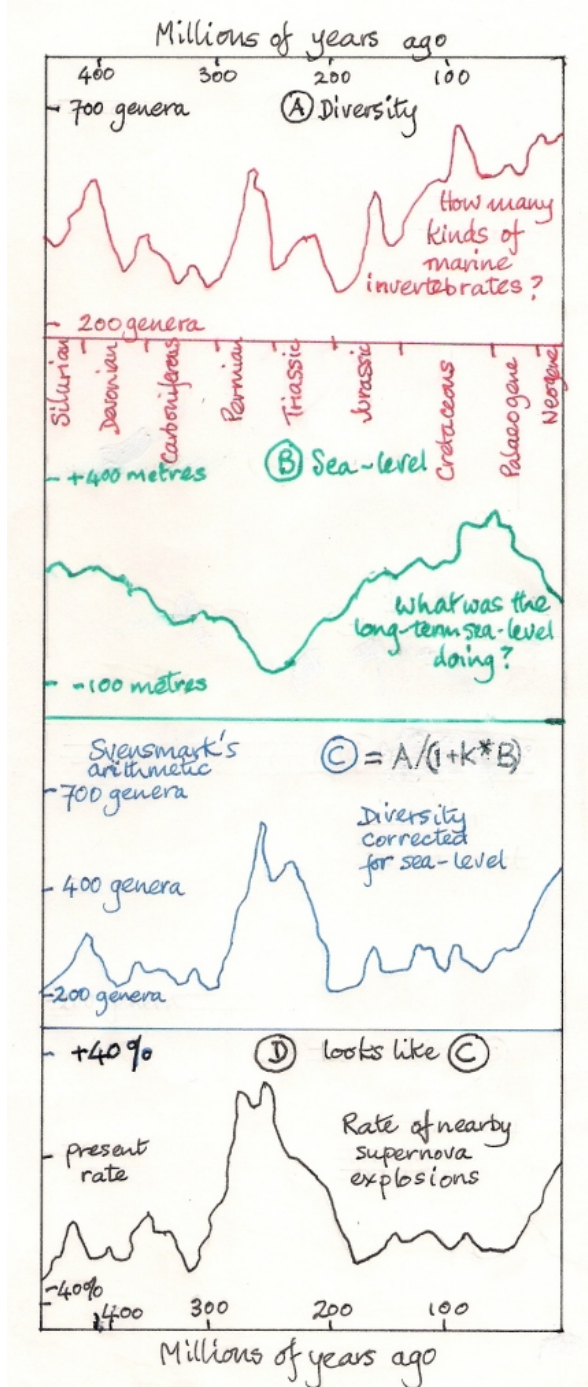 Millions of years ago
400 300 200 100
700 genera
Ⓐ Diversity
How many
kinds of
marine
invertebrates?
200 genera
Silurian
Devonian
Carboniferous
Permian
Triassic
Jurassic
Cretaceous
Palaeogene
Neogene
Ⓑ Sea-level
+400 metres
What was the
long-term sea-level
doing?
-100 metres
Svensmark's
arithmetic
Ⓒ = A/(1+K*B)
700 genera
Diversity
corrected
for sea-level
400 genera
200 genera
+40%
Ⓓ looks like Ⓒ
present
rate
Rate of nearby
supernova
explosions
-40%
400 300 200 100
Millions of years ago